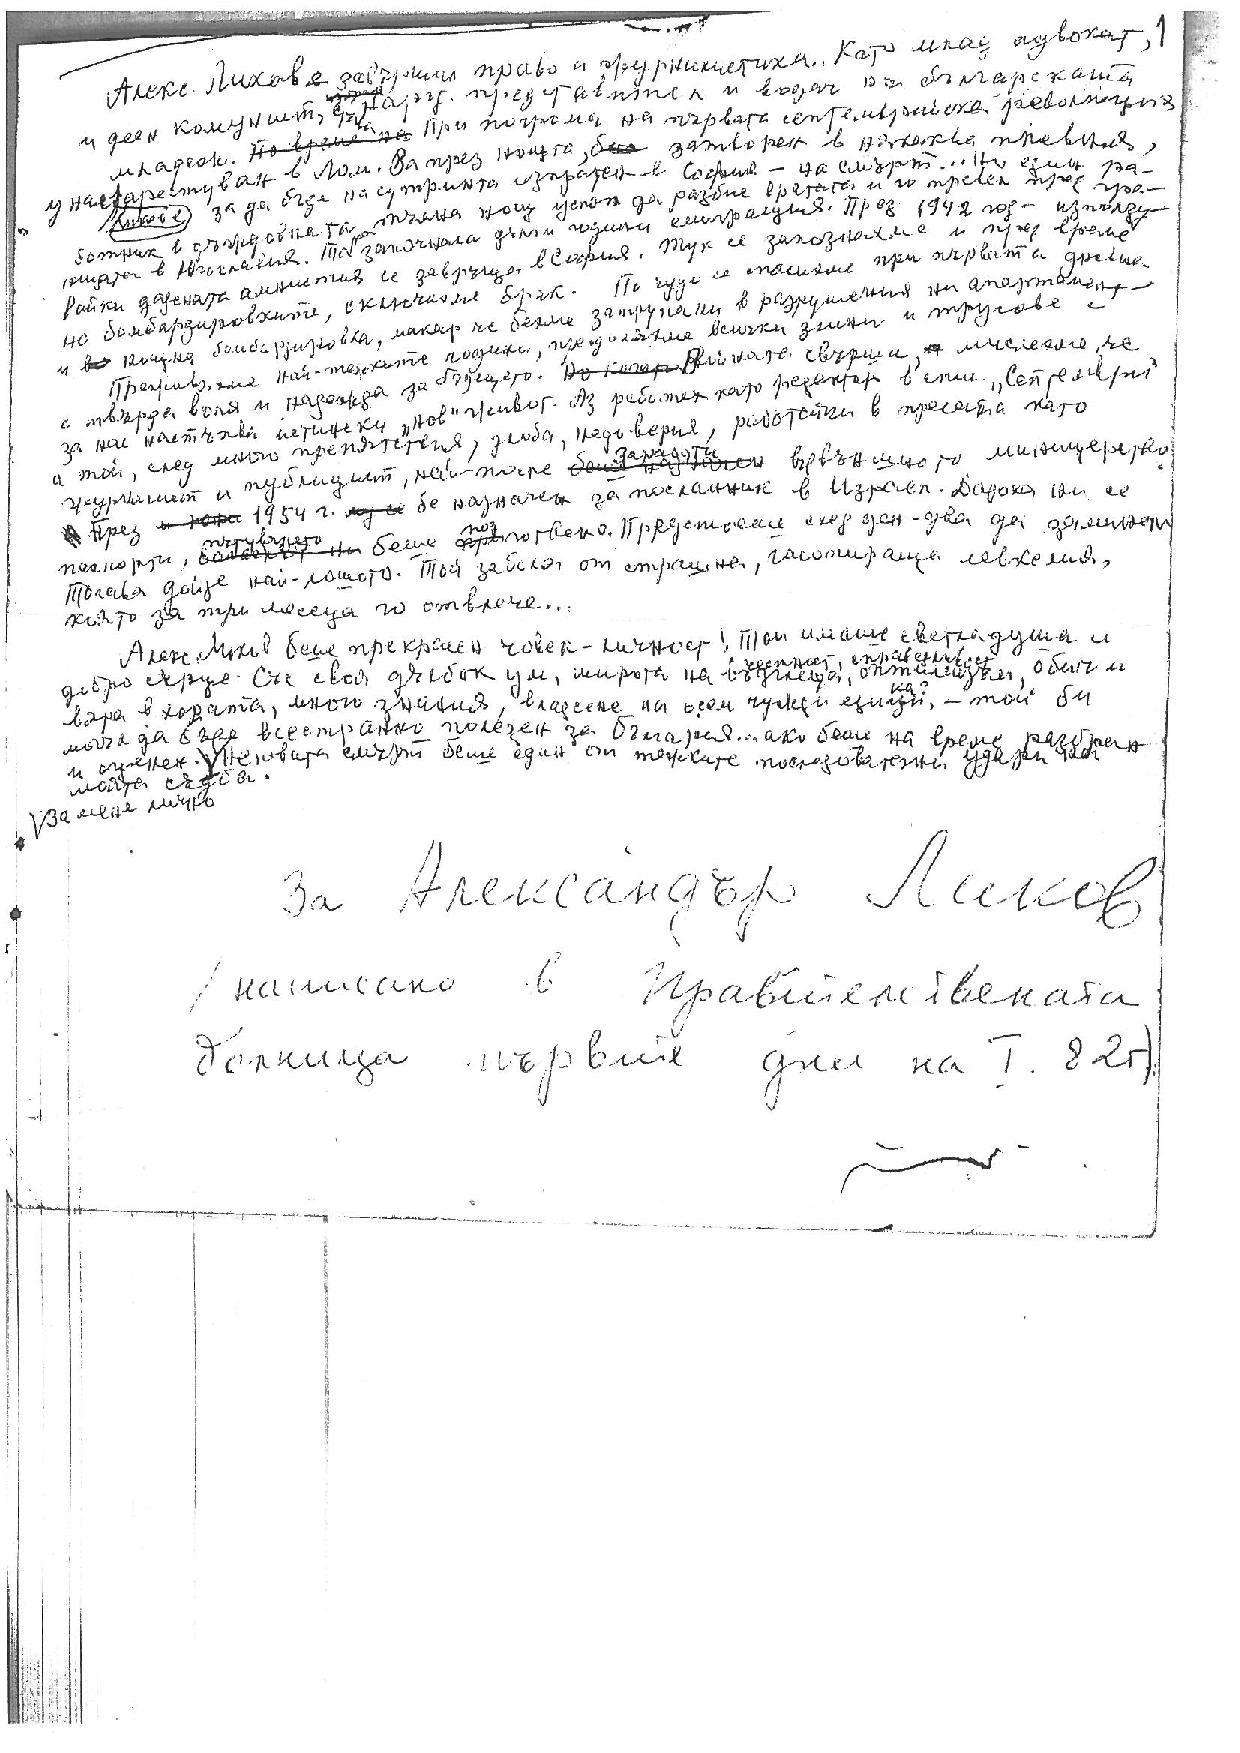 Алекс. Ликов е завършил право и журналистика. Като млад адвокат,
и деен комунист, нар. представител и водач на българската
младеж. При погрома на първата септемврийска революция
у нас арестуван в Лом. За през нощта, затворен в някаква плевня,
Ликов за да бъде на сутринта изпратен в София – на смърт... Но един ра-
ботник в дъждовната тъмна нощ успял да разбие вратата и го превел през гра-
ницата в Югославия. Та започнала дълги години емиграция. През 1942 год – използу-
вайки дадената амнистия се завръща в София. Тук се запознахме и през време
на бомбардировките, сключихме брак. По чудо се спасихме при първата дневна
и нощна бомбардировка, макар че бяхме затрупани в разрушения ни апартамент –
Преживяхме най-тежките години, преодоляхме всички злини и трусове с
с твърда воля и надежда за бъдещето. Войната свърши, мислехме, че
за нас настъпва истински „нов" живот. Аз работех като редактор в' „Септември"
а той, след много препятствия, злоба, недоверия, работейки в пресата като
журналист и публицист, най-после заработи в Външното министерство.
През 1954 г. бе назначен за посланник в Израел. Дадоха ни се
паспорти, пътуването беше подготвено. Предстоеше след ден-два да заминем
Тогава дойде най-лошото. Той заболя от страшна, галопираща левкемия,
която за три месеца го отвлече...
Алекс. Ликов беше прекрасен човек – личност! Той имаше светла душа и
добро сърце. Със своя дълбок ум, широта на възгледа, честност, справедливост, оптимизъм, обич и
вяра в хората, много знания, владеене на осем чужди езика, – той би
могъл да бъде всестранно полезен за България... ако беше на време разбран
и оценен. V Неговата смърт беше един от тежките последователни удари на
моята съдба.
V За мене лично
За Александър Ликов
/написано в Правителствената
болница първите дни на I. 82 г.)